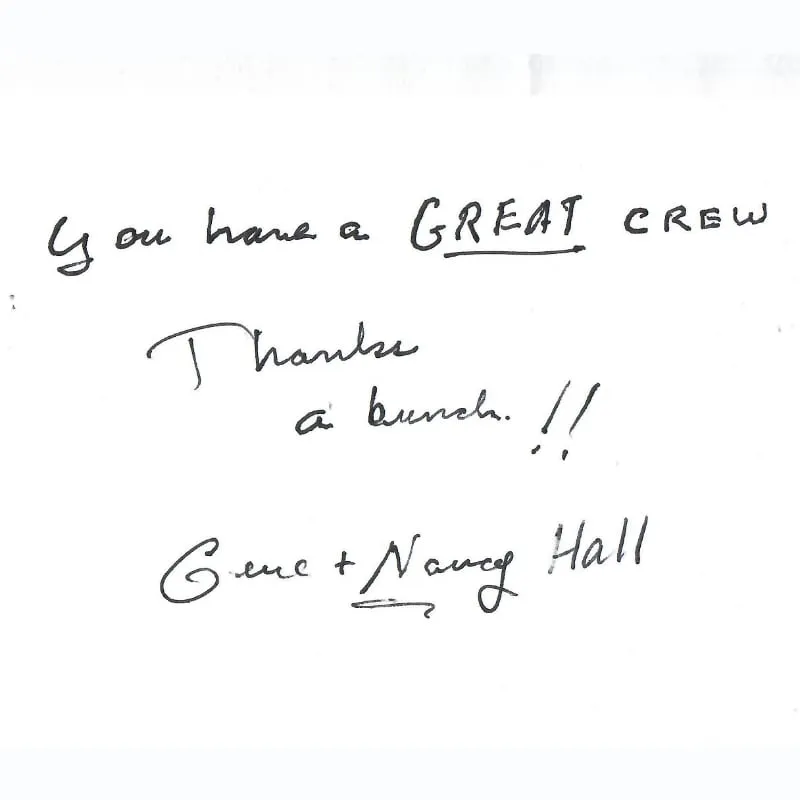 You have a GREAT CREW
Thanks
a bunch. !!
Gene + Nancy Hall